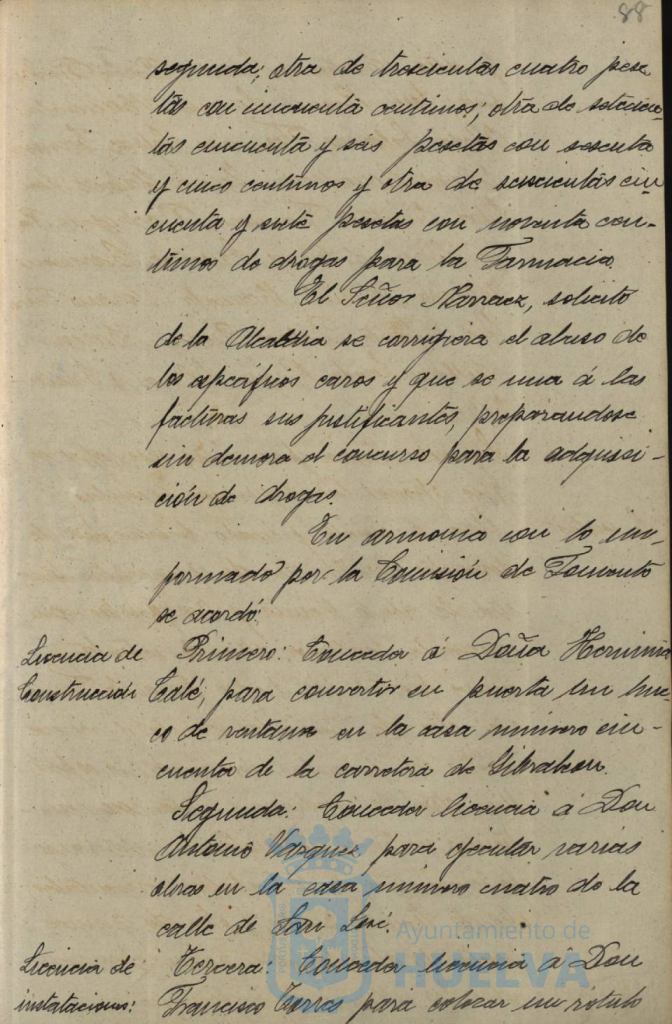 88
segunda; otra de trescientas cuatro pese
tas con cincuenta centimos; otra de setecien
tas cincuenta y seis pesetas con sesenta
y cinco centimos y otra de seiscientas cin
cuenta y siete pesetas con noventa cen-
timos de drogas para la Farmacia.
El Señor Narvaez, solicitó
de la Alcaldia se corrigiera el abuso de
los específicos caros y que se una á las
facturas sus justificantes, preparandose
sin demora el concurso para la adquisi-
ción de drogas.
En armonia con lo in-
formado por la Comisión de Fomento
se acordó:
Licencia de
Construcción
Primero: Conceder á Doña Herminia
Calé, para convertir en puerta un hue
co de ventana en la casa numero cin-
cuenta de la carretera de Gibraleon.
Segunda: Conceder licencia á Don
Antonio Vazquez para ejecutar varias
obras en la casa numero cuatro de la
calle de San José.
Licencia de
instalaciones:
Tercera: Conceder licencia á Don
Francisco Torres para colocar un rotulo
Ayuntamiento de
HUELVA